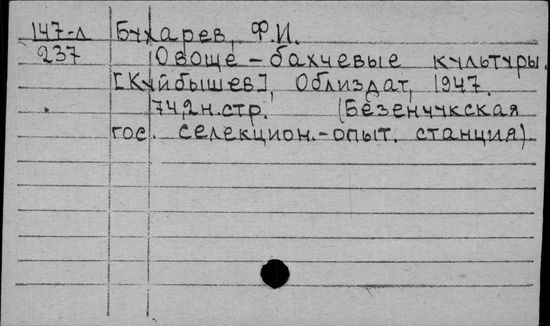 147-л Бухарев, Ф.И.
237 Овоще-бахчевые культуры.
[Куйбышев], Облиздат, 1947.
74,2н.стр. (Безенчукская
гос. селекцион.-опыт. станция).